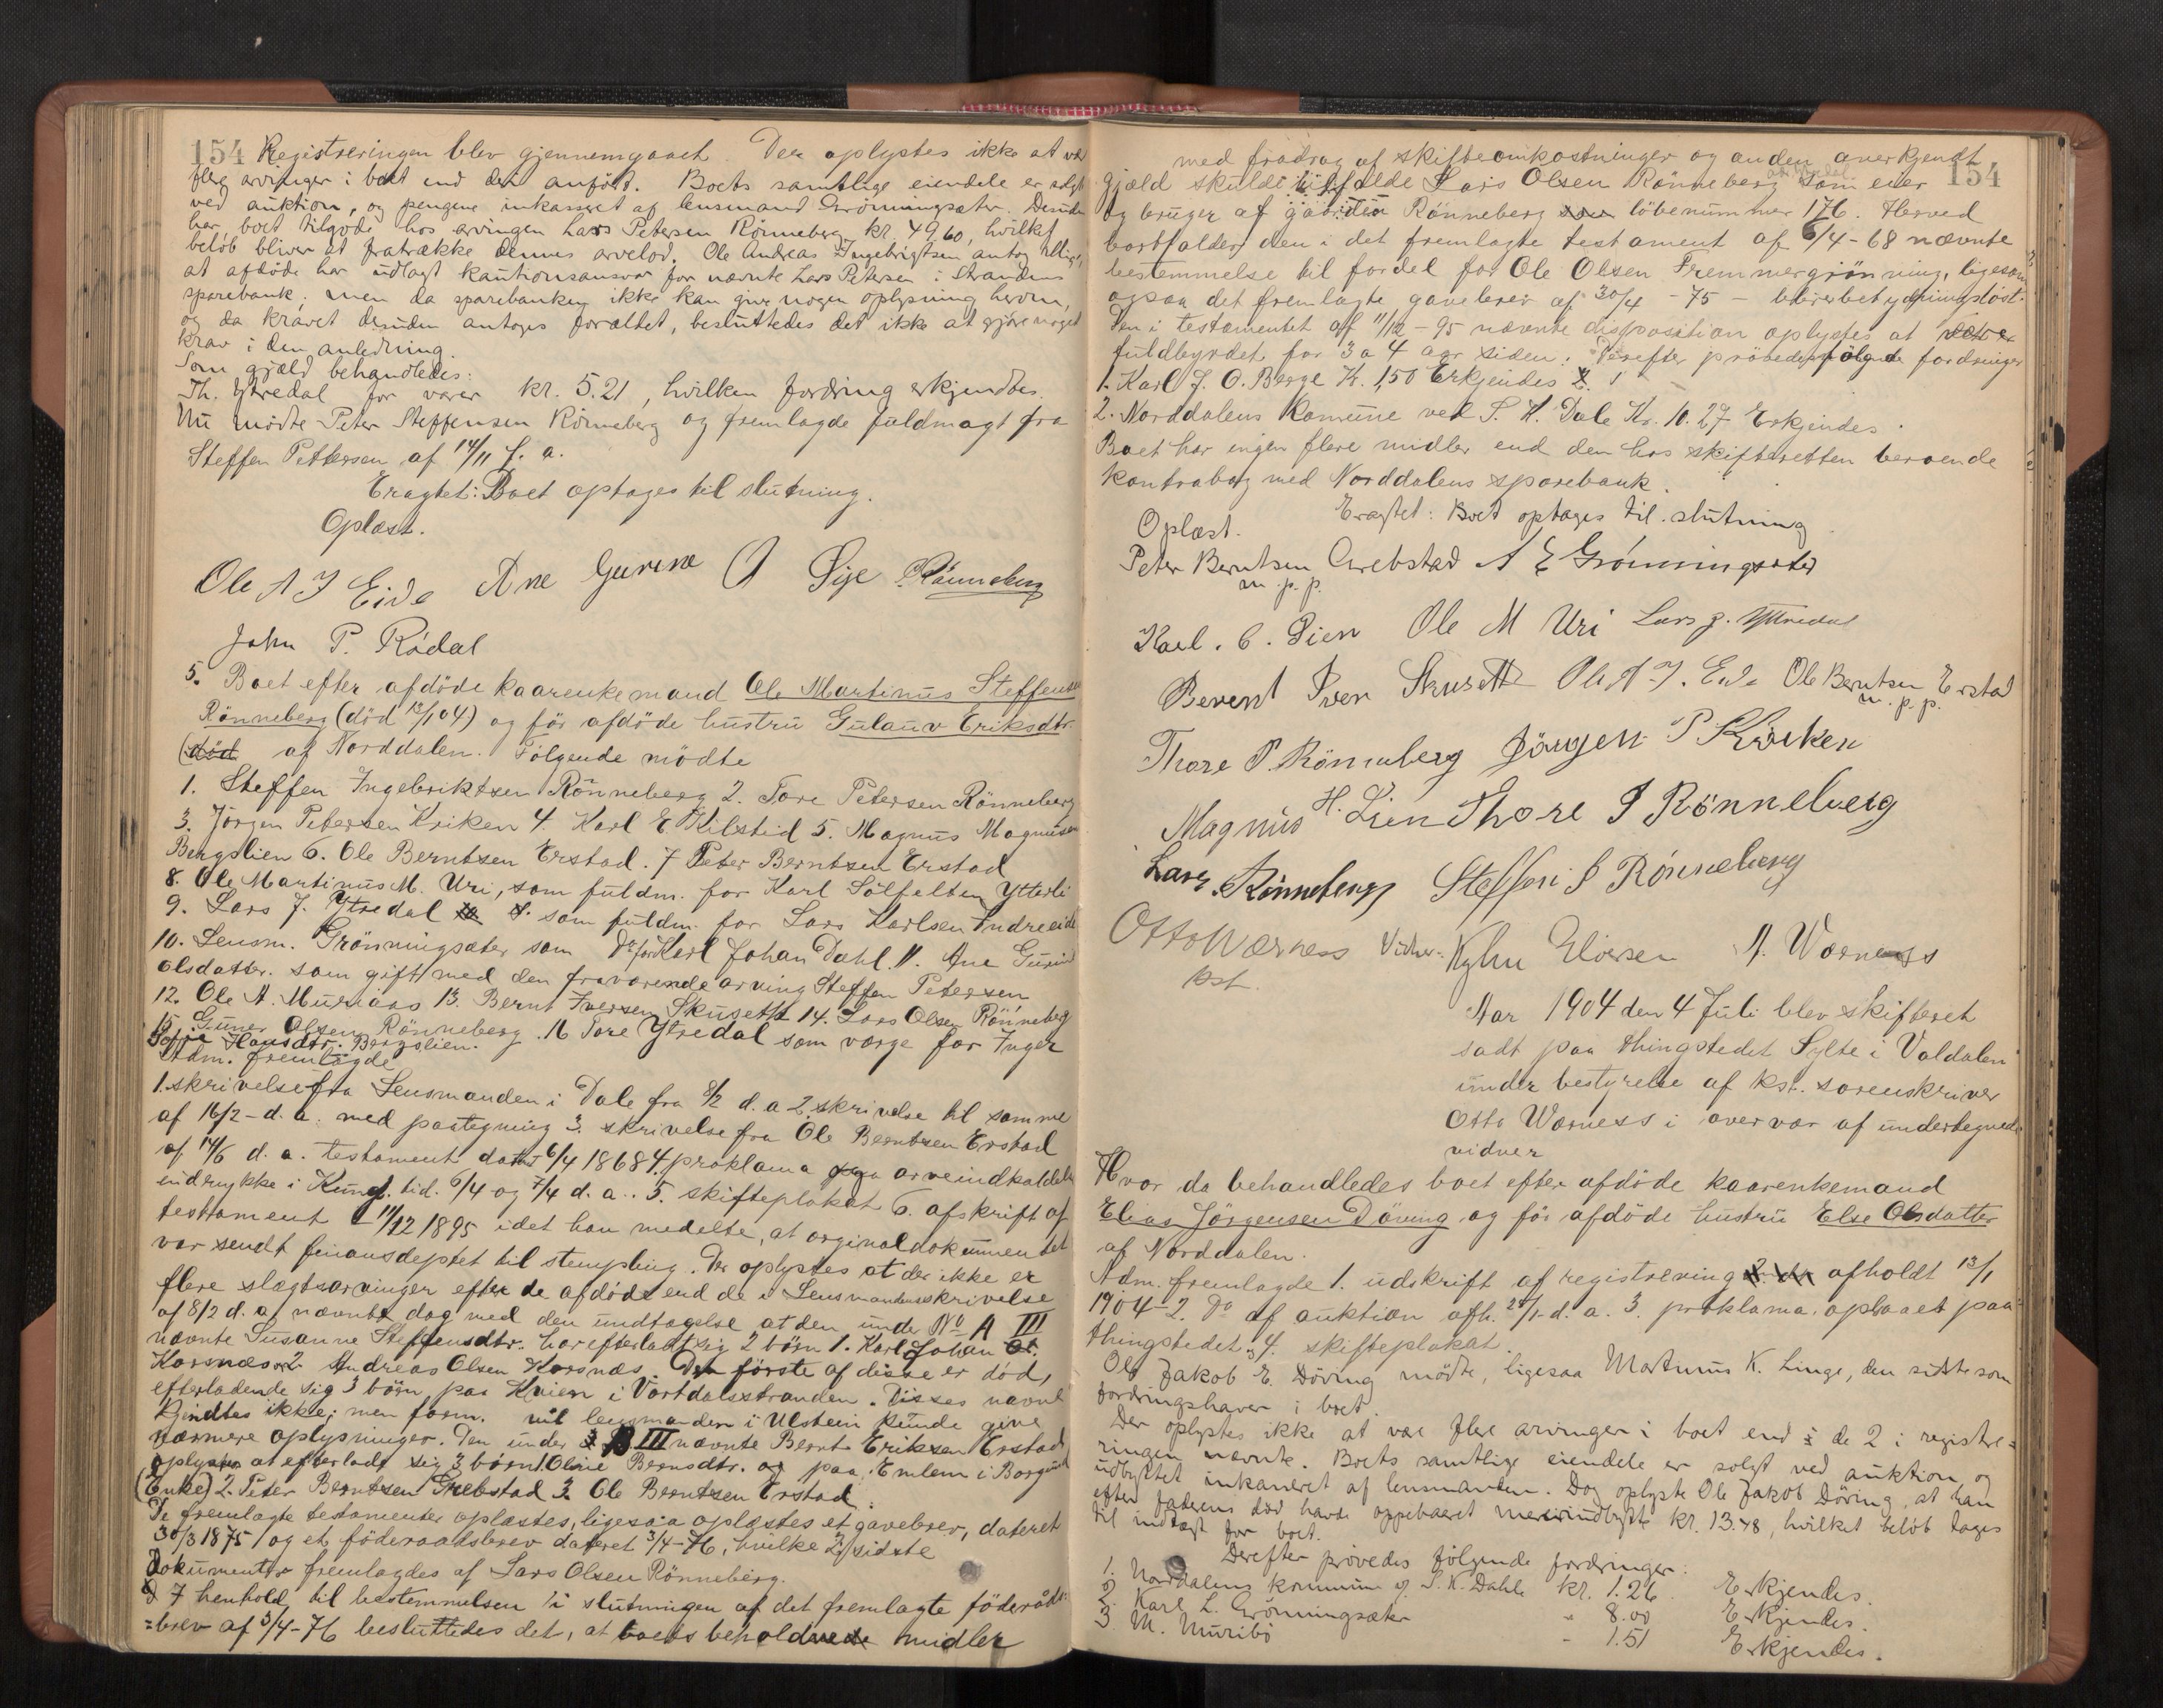 154 Registreringen blev gjennemgaaet. Der oplystes ikke at være
flere arvinger i boet end der anført. Boets samtlige eiendele er solgt
ved auktion, og pengene inkasseret af lensmand Grønningsæter. Desuden
har boet tilgode hos arvingen Lars Petersen Rönneberg kr. 49,60, hvilket
beløb bliver at fratrække dennes arvelod. Ole Andreas Ingebrigtsen antog tillige,
at afdøde har udlagt kautionsansvar for nævnte Lars Petersen i Strandens
sparebank; men da sparebanken ikke kan give nogen oplysning herom,
og da kravet desuden antages forældet, besluttedes det ikke at gjøre noget
krav i den anledning.
Som gjæld behandledes:
Th. Ytredal for varer kr. 5.21, hvilken fordring erkjendtes.
Nu mødte Peter Steffensen Rönneberg og fremlagde fuldmagt fra
Steffen Pettersen af 14/11 f. a.
Eragtet: Boet optages til slutning.
Oplæst.
Ole A I Eide Ane Gurine O Sije Rönneberg
John P. Rødal
5. Boet efter afdöde kaarenkemand Ole Martinus Steffensen
Rönneberg (död 12/1 04) og för afdöde hustru Gulauv Eriksdtr.
(död af Norddalen. Fölgende mödte
1. Steffen Ingebriktsen Rönneberg 2. Tore Petersen Rönneberg
3. Jörgen Petersen Kriken 4. Karl E Kilstid 5. Magnus Magnusen
Bergslien 6. Ole Berntsen Erstad. 7 Peter Berntsen Erstad
8. Ole Martinus M. Uri, som fuldm. for Karl Sölfelten Ytterli
9. Lars J. Ytredal som fuldm. for Lars Karlsen Indreeide
10. Lensm. Grönningsæter som Do for Karl Johan Dahl. 11. Ane Gurine
Olsdatter. som gift med den fraværende arving Steffen Petersen
12. Ole A. Muriaas 13. Bernt Iversen Skusett 14. Lars Olsen Rönneberg
15. Guner Olsen Rönneberg. 16 Tore Ytredal som værge for Inger
Sofie Hansdtr. Bergslien.
Adm. fremlagde
1. skrivelse fra Lensmanden i Dale fra 8/2 d. a 2. skrivelse til samme
af 16/2 - d. a. med paategning 3. skrivelse fra Ole Berntsen Erstad
af 14/6 d. a. testament dateret 6/4 1868 4. proklama arveindkaldelse
indrykke i Kundg. tid. 6/4 og 7/4 d. a.. 5. skifteplakat 6. afskrift af
testament 11/12 1895 idet han medelte, at orginaldokumentet
var sendt finansdeptet til stempling. Der oplystes at der ikke er
flere slægtsarvinger efter de afdöde end de i Lensmandens skrivelse
af 8/2 d. a nævnte dog med den undtagelse at den under No A III
nævnte Susanne Steffensdtr. har efterladt sig 2 börn 1. Karl Johan
Korsnæs 2 Andreas Olsen Korsnæs. Den förste af disse er död,
efterladende sig 3 börn paa Kvien i Vartdalsstranden. Disses navne
kjendtes ikke; men form. vil lensmanden i Ulstein kunde give
nærmere oplysninger. Den under B III nævnte Bernt Eriksen Erstad
oplystes at efterladt sig 3 börn 1. Oline Bernsdtr. paa Emlem i Borgund
(Enke) 2. Peter Berntsen Grebstad 3. Ole Berntsen Erstad.
De fremlagte testamenter oplæstes, ligesaa oplæstes et gavebrev, dateret
30/3 1875 og et föderaadsbrev dateret 3/4-76, hvilke 2 sidste
dokumenter fremlagdes af Lars Olsen Rönneberg.
I henhold til bestemmelsen i slutningen af det fremlagte föderåds-
=brev af 3/4-76 besluttedes det, at boets beholdne midler
med fradrag af skifteomkostninger og anden anerkjendt
gjæld skulde tilfalde Lars Olsen Rönneberg som eier 154
og bruger af gaarden Rönneberg löbenummer 176. Herved
bortfalder den i det fremlagte testament af 6/4-68 nævnte
bestemmelse til fordel for Ole Olsen Fremmergrönning, ligesom
ogsaa det fremlagte gavebrev af 30/4 - 75 - bliver betydningslöst.
Den i testamentet af 11/12-95 nævnte disposition oplystes at være
fuldbyrdet for 3 a 4 aar siden. Derefter prövedes fölgende fordringer
1. Karl J. O. Berge Kr. 1,50 Erkjendes
2. Norddalens Komune ved S. K. Dale Kr. 10.27 Erkjendes.
Boet har ingen flere midler end den hos skifteretten beroende
kontrabog med Norddalens sparebank.
Eragtet: Boet optages til slutning
Oplæst.
Peter Berntsen Grebstad A E Grönningsæter
m. p. p.
Karl. E. Lien Ole M Uri Lars J. Yttredal
Berent Iver Skusett Ole A I. Eide Ole Berntsen Erstad
m. p. p.
Thore P. Rönneberg Jörgen P Kriken
Magnus H. Lien Thore S Rönneberg
Lars Rönneberg Steffen S Rönneberg
Otto Wærness Vidner: A. Wærness
kst.
Aar 1904 den 4 Juli blev skifteret
sadt paa thingstedet Sylte i Valdalen
under bestyrelse af kst. sorenskriver
Otto Wærness i overvær af undertegnede
vidner
Hvor da behandledes boet efter afdöde kaarenkemand
Elias Jörgensen Döving og för afdöde hustru Else Olsdatter
af Norddalen.
Adm. fremlagde 1. udskrift af registrering afholdt 13/1
1904 - 2. Do af auktion afh. 28/1 d. a. 3. proklama oplæst paa
thingstedet. 4. skifteplakat.
Ole Jakob E. Döving mödte, ligesaa Martinus K. Linge, den sidste som
fordringshaver i boet.
Der oplystes ikke at være flere arvinger i boet end de 2 i registre=
ringen nævnte. Boets samtlige eiendele er solgt ved auktion, og
udbyttet inkasseret af lensmanden. Dog oplyste Ole Jakob Döving, at han
efter faderens död havde oppebaaret meieriudbytte kr. 13.48, hvilket belöb tages
til indtægt for boet.
Derefter prövedes fölgende fordringer:
1. Norddalens kommune v. S. K. Dahle kr. 1.26 Erkjendes.
2. Karl L. Grönningsæter " 8.00 Erkjendes.
3. M. Muribö - 1.51 Erkjendes.